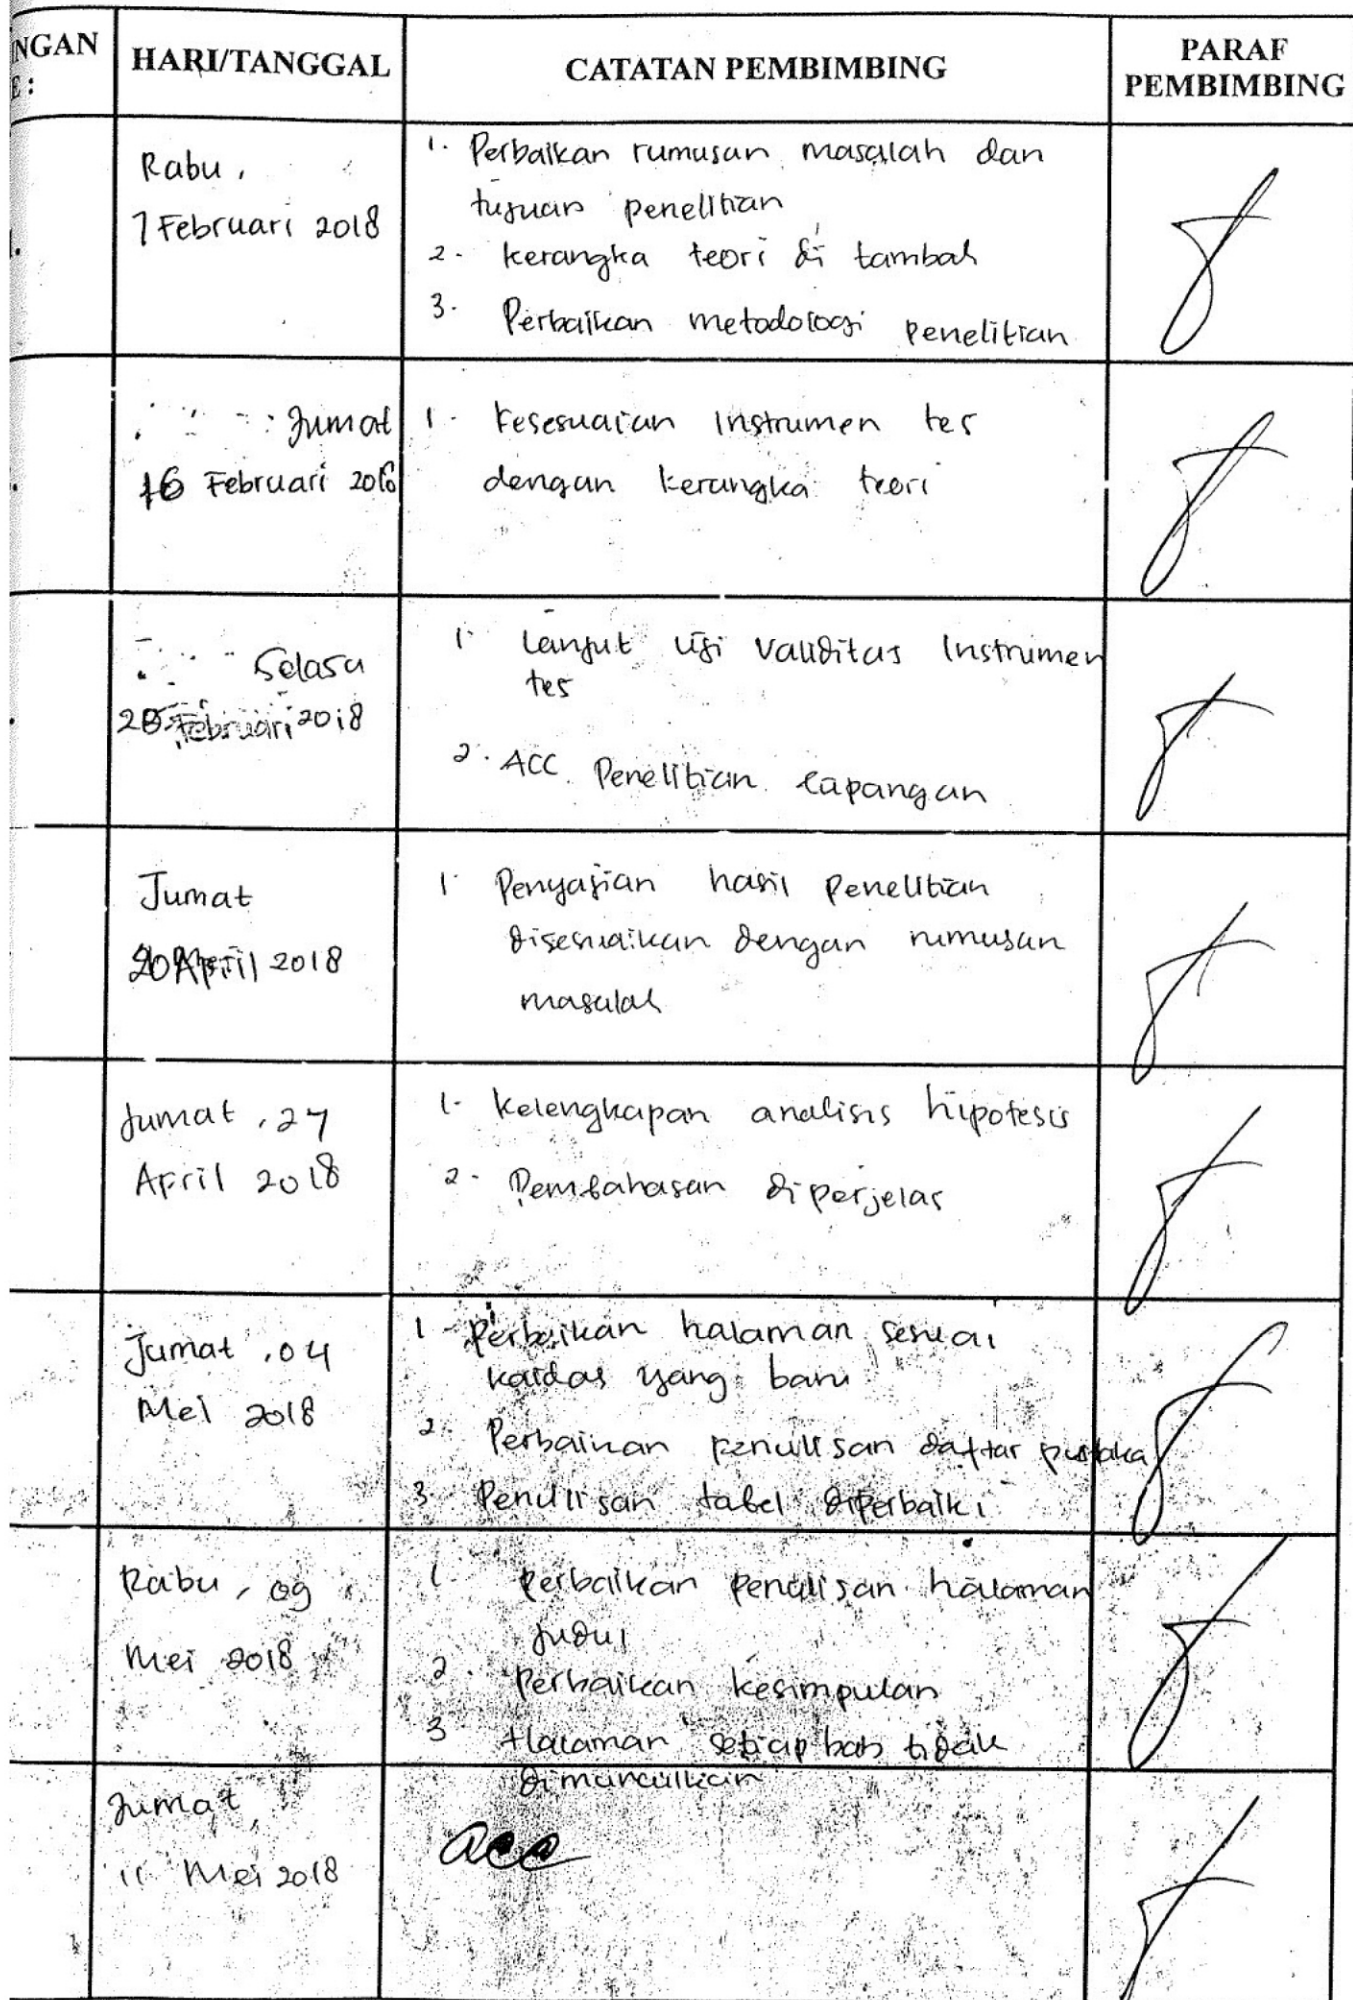 NGAN
E :
HARI/TANGGAL
CATATAN PEMBIMBING
PARAF
PEMBIMBING
Rabu,
7 Februari 2018
1. Perbaikan rumusan masalah dan
tujuan penelitian
2. kerangka teori di tambah
3. Perbaikan metodologi penelitian
Jumat
16 Februari 2018
1. Kesesuaian Instrumen tes
dengan kerangka teori
Selasa
Februari 2018
1. Lanjut uji validitas Instrumen
tes
2. ACC Penelitian lapangan
Jumat
20 April 2018
1. Penyajian hasil penelitian
disesuaikan dengan rumusan
masalah
Jumat, 27
April 2018
1. Kelengkapan analisis hipotesis
2. Pembahasan diperjelas
Jumat, 04
Mei 2018
1. Perbaikan halaman sesuai
kaidas yang baru
2. Perbaikan penulisan daftar pustaka
3 Penulisan tabel diperbaiki
Rabu, 09
Mei 2018
1. Perbaikan penulisan halaman
judul
2. Perbaikan kesimpulan
3 Halaman setiap bab tidak
dimunculkan
Jumat,
11 Mei 2018
acc